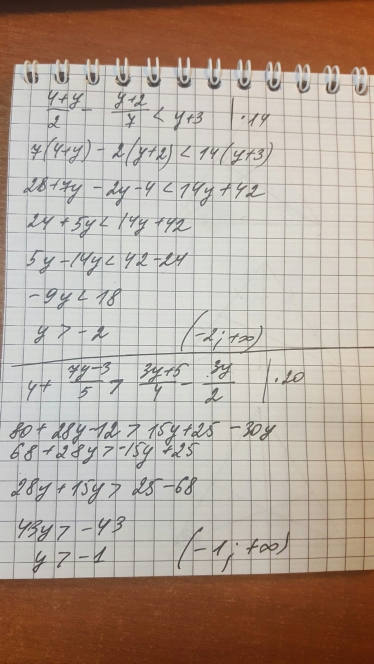 (4+y)/2 - (y+2)/7 < y+3 | ·14
7(4+y) - 2(y+2) < 14(y+3)
28+7y - 2y-4 < 14y+42
24 + 5y < 14y + 42
5y - 14y < 42 - 24
-9y < 18
y > -2 (-2; +∞)
4 + (7y-3)/5 > (3y+5)/4 - 3y/2 | ·20
80 + 28y - 12 > 15y + 25 - 30y
68 + 28y > -15y + 25
28y + 15y > 25 - 68
43y > -43
y > -1 (-1; +∞)